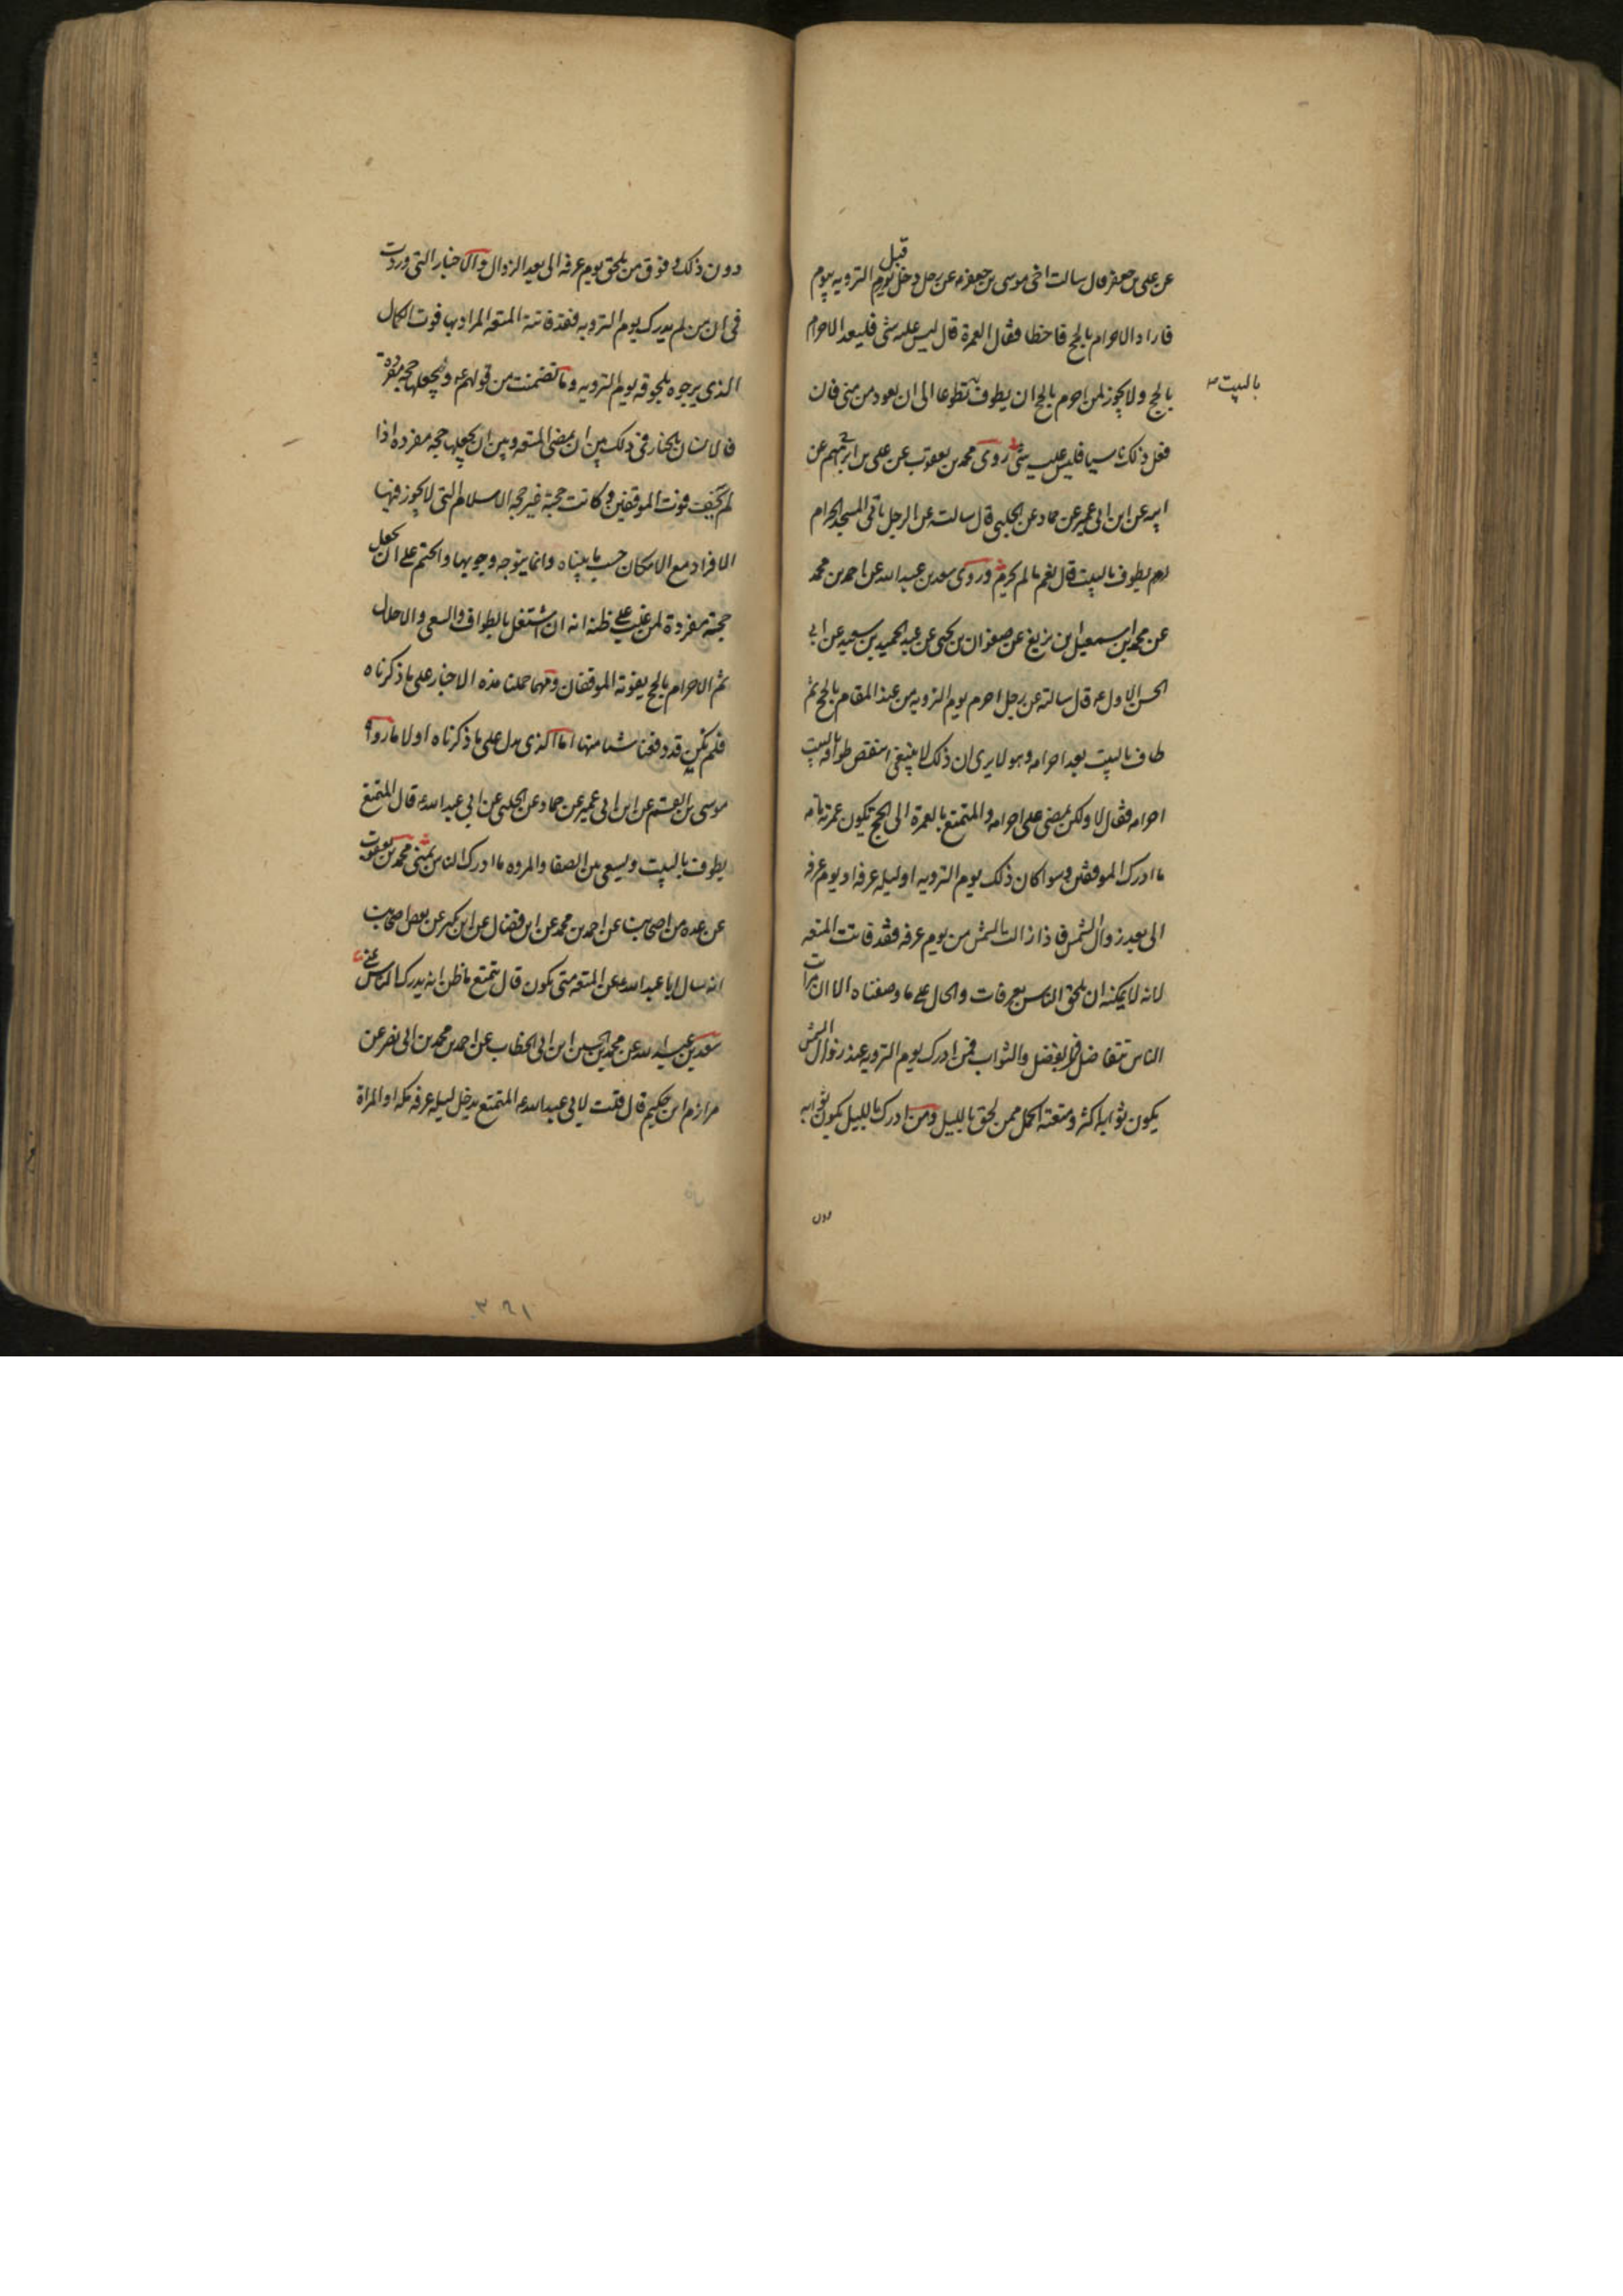 عن علی بن جعفر قال سالت اخی موسی بن جعفر ع عن رجل دخل قبل یوم الترویه بیوم
فاراد الاحرام بالحج فاخطا فقال العمرة قال لیس علیه شی فلیعد الاحرام
بالحج ولا یجوز لمن احرم بالحج ان یطوف تطوعا الی ان یعود من منی فان
بالبیت
فعل ذلک ناسیا فلیس علیه شی روی محمد بن یعقوب عن علی بن ابرهیم عن
ابیه عن ابن ابی عمیر عن حماد عن الحلبی قال سالته عن الرجل یاتی المسجد الحرام
یطوف بالبیت قال نعم ما لم یحرم وروی سعد بن عبد الله عن احمد بن محمد
عن محمد بن اسمعیل ابن بزیع عن صفوان بن یحیی عن عبد الحمید بن سعید عن ابی
الحسن الاول ع قال سالته عن رجل احرم یوم الترویه من عند المقام بالحج ثم
طاف بالبیت بعد احرامه وهو لا یری ان ذلک لا ینبغی اینقض طوافه بالبیت
احرامه فقال لا ولکن یمضی علی احرامه والمتمتع بالعمرة الی الحج تکون عمرته تامه
ما ادرک الموقفین وسوا کان ذلک یوم الترویه او لیله عرفه او یوم عرفه
الی بعد زوال الشمس فاذا زالت الشمس من یوم عرفه فقد فاتت المتعه
لانه لا یمکنه ان یلحق الناس بعرفات والحال علی ما وصفناه الا ان مراتب
الناس تتفاضل فی الفضل والثواب فمن ادرک یوم الترویه عند زوال الشمس
یکون ثوابه اکثر ومتعته اکمل ممن لحق باللیل ومن ادرک باللیل یکون ثوابه
دون
دون ذلک و فوق من یلحق یوم عرفه الی بعد الزوال والاخبار التی وردت
فی ان من لم یدرک یوم الترویه فقد فاتته المتعه المراد بها فوت الکمال
الذی یرجوه بلحوقه یوم الترویه وما تضمنت من قولهم ع ولیجعلها حجه مفردة
فالانسان بالخیار فی ذلک بین ان یمضی المتعه وبین ان یجعلها حجه مفرده اذا
لم یخف فوت الموقفین وکانت حجته غیر حجه الاسلام التی لا یجوز فیها
الافراد مع الامکان حسب ما بیناه وانما یتوجه وجوبها والحتم علی ان یجعل
حجته مفردة لمن غلب علی ظنه انه ان اشتغل بالطواف والسعی والاحلال
ثم الاحرام بالحج یفوته الموقفان ومهما حملنا هذه الاخبار علی ما ذکرناه
فلم نکن قد دفعنا شیئا منها اما الذی یدل علی ما ذکرناه اولا ما رواه
موسی بن القسم عن ابن ابی عمیر عن حماد عن الحلبی عن ابی عبد الله ع قال المتمتع
یطوف بالبیت ویسعی بین الصفا والمروه ما ادرک الناس بمنی محمد بن یعقوب
عن عده من اصحابنا عن احمد بن محمد عن ابن فضال عن ابن بکیر عن بعض اصحابنا
انه سال ابا عبد الله ع عن المتعه متی تکون قال یتمتع ما ظن انه یدرک الناس بمنی
سعد بن عبد الله عن محمد بن الحسین ابن ابی الخطاب عن احمد بن محمد بن ابی نصر عن
مرازم ابن حکیم قال قلت لابی عبد الله ع المتمتع یدخل لیله عرفه مکه او المراة